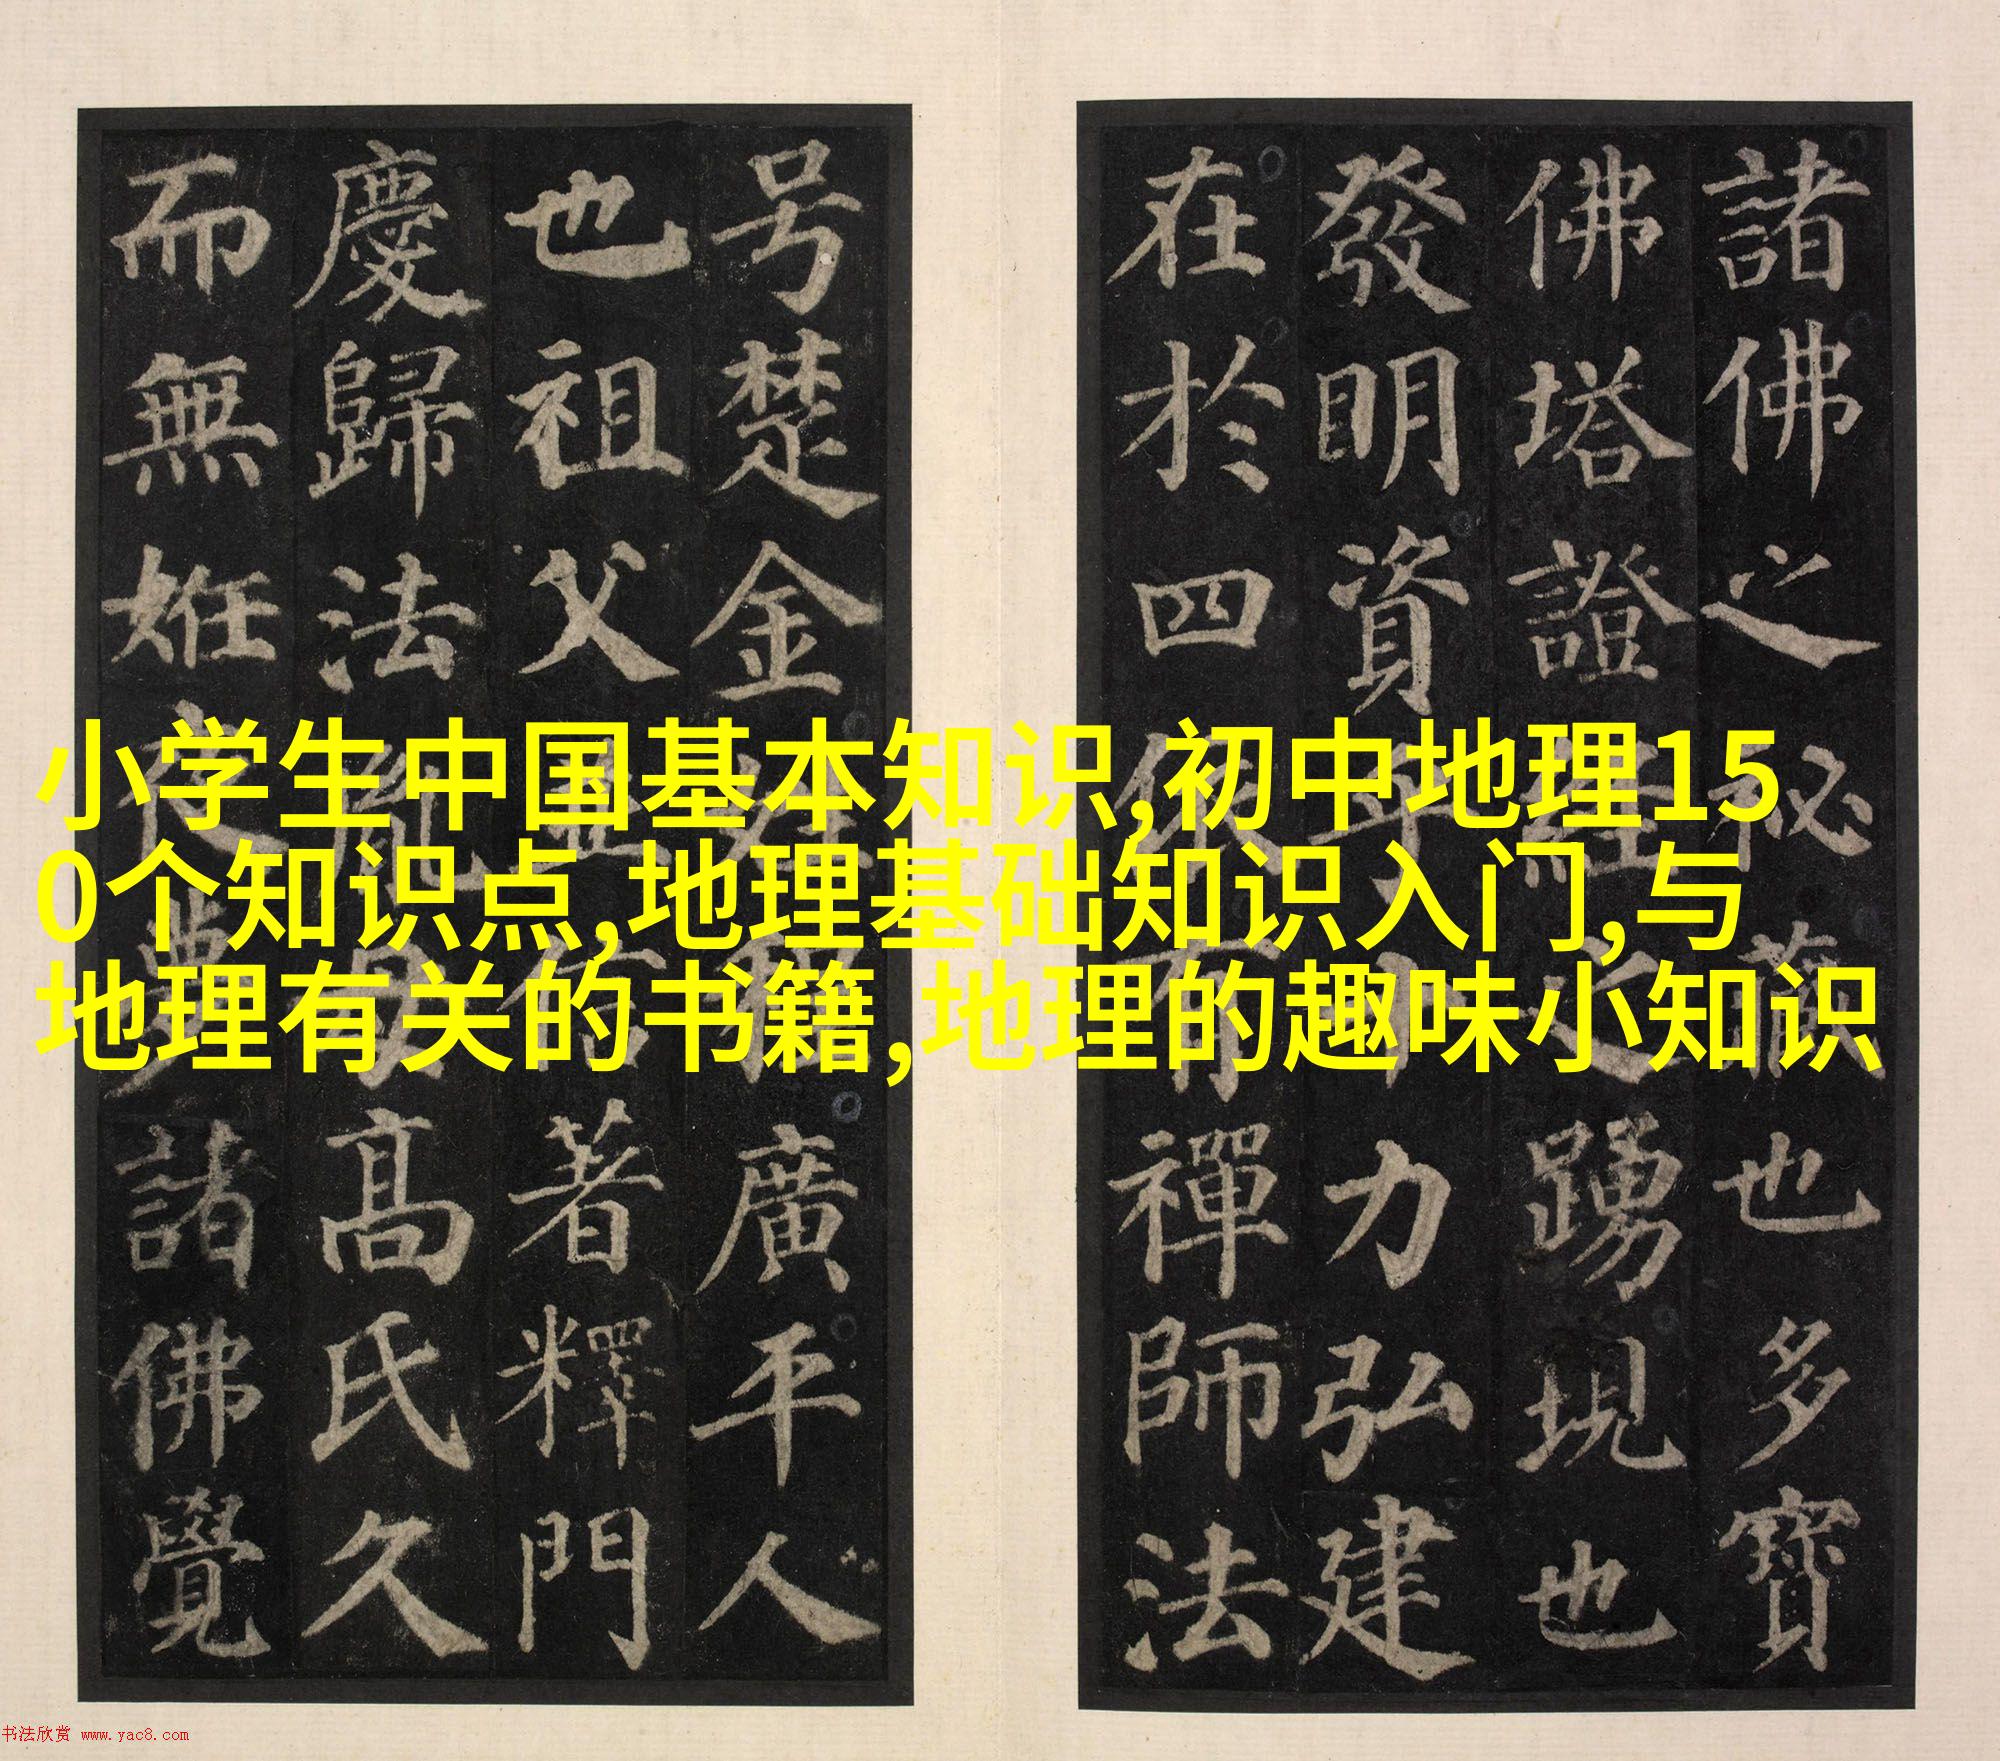 諸佛之祕藏也多寶
佛塔證經之踴現也
發明資乎十力弘建
在於四依有禪師法
号楚金姓程廣平人
也祖父並信著釋門
慶歸法胤母高氏久
而無姙夜夢諸佛覺
小学生中国基本知识,初中地理15
0个知识点,地理基础知识入门,与
地理有关的书籍,地理的趣味小知识
书法欣赏 www.yac8.com